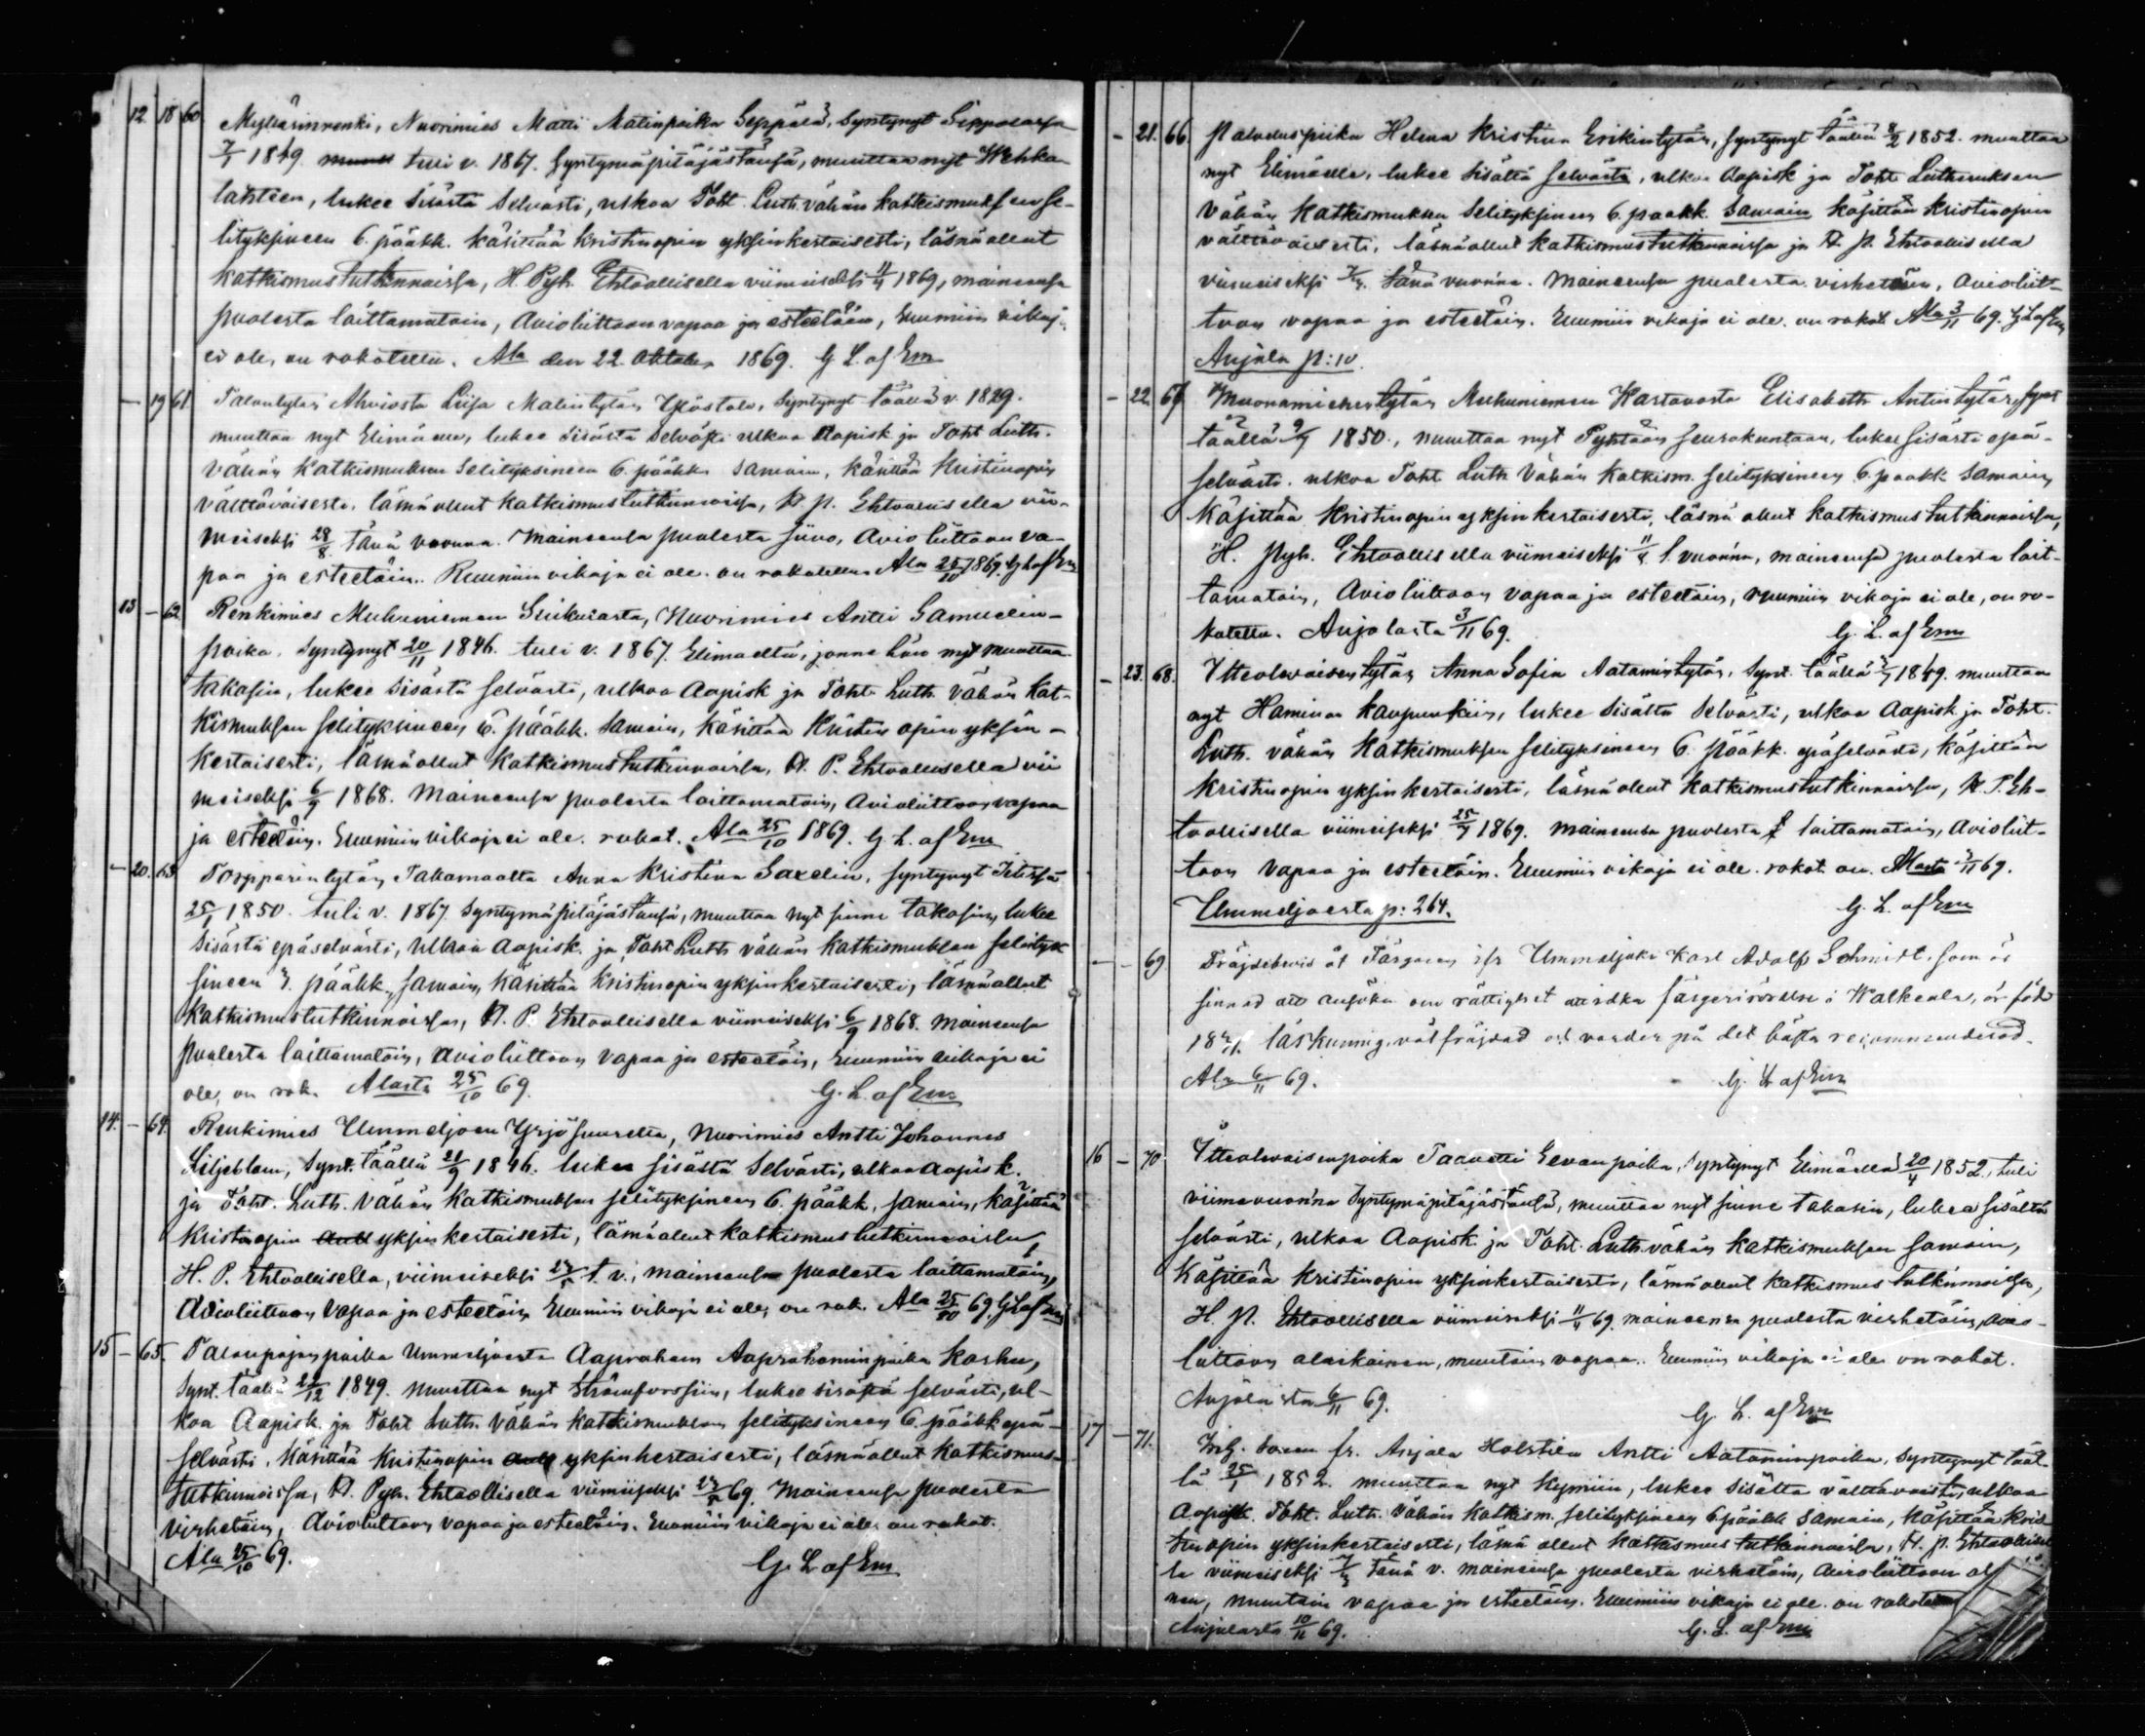 12 18 60 Myllärinrenki, Nuorimies Matti Matinpoika Seppälä, Syntynyt Sippolassa
7/1 1849 tuli v. 1867. Syntymäpitäjästänsä, muuttaa nyt Wehka-
lahteen, lukee sisästä selvästi, ulkoa Toht. Luth. vähän katkismuksen se-
lityksineen 6. pääkk. käsittää kristinopin yksinkertaisesti, läsnä ollut
katkismustutkinnoissa, H. Pyh. Ehtoollisella viimeiseksi 11/4 1869, maineensa
puolesta laittamatoin, Avioliittoon vapaa ja esteetöin, Ruumiin vikoj.
ei ole, on rokotettu. Ala den 22. Oktober 1869. G L af Em
– 19 61. Talontytär Ahviosta Liisa Matintytär Yjöstalo, Syntynyt täällä v. 1829.
muuttaa nyt Elimäelle, lukee sisästä selvästi ulkoa Aapisk ja Toht Luth.
vähän katkismuksen Selityksineen 6. pääkk. samoin, käsittää Kristinopin
välttäväisesti, läsnä ollut katkismustutkinnoissa, H. p. Ehtoollisella vii-
meiseksi 28/8 tänä vuonna. Maineensa puolesta siivo, Avioliittoon va-
paa ja esteetöin. Ruumiin vikoja ei ole. on rokotettu Ala 25/10 1869. G L af Em
13 – 62 Renkimies Muhniemen nuorimies Antti Samuelin-
poika. Syntynyt 20/11 1846. tuli v. 1867. Elimäeltä, jonne hän nyt muuttaa
takasin, lukee sisästä selvästi, ulkoa Aapisk ja Toht Luth vähän kat-
kismuksen selityksineen 6. pääkk. samoin, käsittää Kristin opin yksin-
kertaisesti, läsnä ollut katkismustutkinnoissa, H. P. Ehtoollisella vii
meiseksi 6/9 1868. Maineensa puolesta laittamatoin, Avioliittoon vapaa
ja esteetöin. Ruumiin vikoja ei ole. rokot. Ala 25/10 1869. G. L. af Em
– 20. 63. Torpparin tytär Takamaalta Anna Kristina Saxelin, syntynyt Iitissä
25/1 1850. tuli v. 1867 Syntymäpitäjästänsä, muuttaa nyt sinne takasin, lukee
sisästä epäselvästi, ulkoa Aapisk. ja Toht Luth vähän katkismuksen selityk
sineen 3. pääkk. samoin, käsittää kristinopin yksinkertaisesti, läsnä ollut
katkismustutkinnoissa, H. P. Ehtoollisella viimeiseksi 6/9 1868. Maineensa
puolesta laittamatoin, avioliittoon vapaa ja esteetöin, Ruumiin vikoja ei
ole, on rok. Alasta 25/10 69. G. L. af Em
14. – 64. Renkimies Ummeljoen Yrjö Suurelta, Nuorimies Antti Johannes
Liljeblom, Synt. täällä 21/9 1846. lukee sisästä selvästi, ulkoa Aapisk.
ja Toht. Luth. vähän katkismuksen selityksineen 6. pääkk, samoin, käsittää
kristinopin yksinkertaisesti, läsnä ollut katkismustutkinnoissa,
H. P. Ehtoollisella, viimeiseksi t. v., maineensa puolesta laittamatoin,
Avioliittoon vapaa ja esteetöin Ruumiin vikoja ei ole, on rok. Ala 25/10 69. G L af Em
15 – 65. Talonpojanpoika Ummeljoesta Aaprahami Aaprahaminpoika Korhu,
synt. täällä 22/12 1849. muuttaa nyt Strömforssiin, lukee sisästä selvästi, ul-
koa Aapisk. ja Toht Luth. vähän katkismuksen selityksineen 6. pääkk epä-
selvästi, käsittää kristinopin yksinkertaisesti, läsnä ollut katkismus-
tutkinnoissa, H. Pyh. Ehtoollisella viimeiseksi 69. Maineensa puolesta
virhetöin, Avioliittoon vapaa ja esteetöin. Ruumiin vikoja ei ole, on rokot.
Ala 25/10 69. G. L af Em
– 21. 66. Palveluspiika Helena Kristina Erikintytär, syntynyt täällä 8/2 1852. muuttaa
nyt Elimäelle, lukee sisältä selvästi, ulkoa Aapisk ja Toht Lutheruksen
vähän katkismuksen selityksineen 6. pääkk. samoin käsittää kristinopin
välttäväisesti, läsnä ollut katkismustutkinnoissa ja H. p. Ehtoollisella
viimeiseksi tänä vuonna. Maineensa puolesta virhetöin, Avioliit-
toon vapaa ja esteetöin. Ruumiin vikoja ei ole. on rokot Ala 3/11 69. G L af Em
Anjala p: 10.
– 22. 67 Muonamiehentytär Muhniemen Elisabeth Antintytär, synt
täällä 9/9 1850., muuttaa nyt Pyhtään seurakuntaan, lukee sisästi epä-
selvästi. ulkoa Toht Luth vähän katkism. selityksineen 6. paakk samoin,
käsittää kristinopin yksinkertaisesti, läsnä ollut katkismustutkinnoissa,
H. Pyh. Ehtoollisella viimeiseksi 11/4 t. vuonna, maineensa puolesta lait-
tamatoin, Avioliittoon vapaa ja esteetöin, ruumiin vikoja ei ole, on ro-
kotettu. Anjalasta 3/11 69. G. L. af Em
– 23. 68. Ittelwaisentytär Anna Sofia Aatamintytär, Synt. täällä 1849. muuttaa
nyt Haminan kaupunkiin, lukee sisältä selvästi, ulkoa Aapisk ja Toht.
Luth. vähän katkismuksen selityksineen 6. pääkk. epäselvästi, käsittää
kristinopin yksinkertaisesti, läsnä ollut katkismustutkinnoissa, H. P. Eh-
toollisella viimeiseksi 25/7 1869. maineensa puolesta laittamatoin, Avioliit-
toon vapaa ja esteetöin. Ruumiin vikoja ei ole. rokot. on. Alasta 3/11 69.
Ummeljoesta p: 264. G. L. af Em
– – 69 Fräjdebevis åt Färgaren ifr Ummeljoki Karl Adolf Schmidt, som är
sinnad att ansöka om rättighet att idka färgerirörelse i Walkeala, är född
läskunnig, väl fräjdad och varder på det bästa recommenderad.
Ala 6/11 69. G. L af Em
16 – 70 Ittelwaisenpoika Taavetti Eevanpoika, Syntynyt Elimäellä 20/4 1852, tuli
viime vuonna Syntymäpitäjästänsä, muuttaa nyt sinne takasin, lukee sisältä
selvästi, ulkoa Aapisk. ja Toht. Luth. vähän katkismuksen samoin,
käsittää kristinopin yksinkertaisesti, läsnä ollut katkismustutkinnoissa,
H. P. Ehtoollisella viimeiseksi 11/4 69. maineensa puolesta virhetöin, avio-
liittoon alaikäinen, muutoin vapaa. Ruumiin vikoja ei ole on rokot.
Anjalasta 6/11 69. G. L. af Em
17 – 71. fr. Anjala Holstila Antti Aataminpoika, syntynyt tääl-
lä 25/1 1852. muuttaa nyt Kymiin, lukee sisältä välttäväisesti, ulkoa
Aapisk. Toht. Luth. vähän katkism. selityksineen 6 pääkk samoin, käsittää kris
tinopin yksinkertaisesti, läsnä ollut katkismus tutkinnoissa, H. p. Ehtoollisel
la viimeiseksi tänä v. maineensa puolesta virhetöin, Avioliittoon al
nen, muutoin vapaa ja esteetöin. Ruumiin vikoja ei ole. on rokotettu
Anjalasta 10/11 69. G. L. af Em